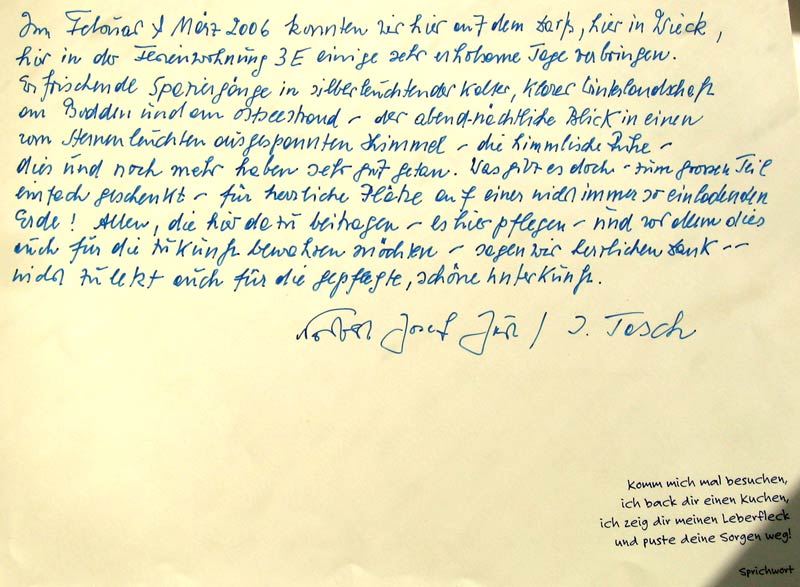 Im Februar & März 2006 konnten wir hier auf dem Darß, hier in Wieck,
hier in der Ferienwohnung 3E einige sehr erholsame Tage verbringen.
Erfrischende Spaziergänge in silberleuchtender kalter, klarer Winterlandschaft
am Bodden und am Ostseestrand – der abend-nächtliche Blick in einen
vom Sternenleuchten ausgespannten Himmel – die himmlische Ruhe –
dies und noch mehr haben sehr gut getan. Was gibt es doch – zum grossen Teil
einfach geschenkt – für herrliche Plätze auf einer nicht immer so einladenden
Erde! Allen, die hier dazu beitragen – es hier pflegen – und vor allem dies
auch für die Zukunft bewahren möchten – sagen wir herzlichen Dank --
nicht zuletzt auch für die gepflegte, schöne Unterkunft.
Josef / J. Tesch
Komm mich mal besuchen,
ich back dir einen Kuchen,
ich zeig dir meinen Leberfleck
und puste deine Sorgen weg!
Sprichwort